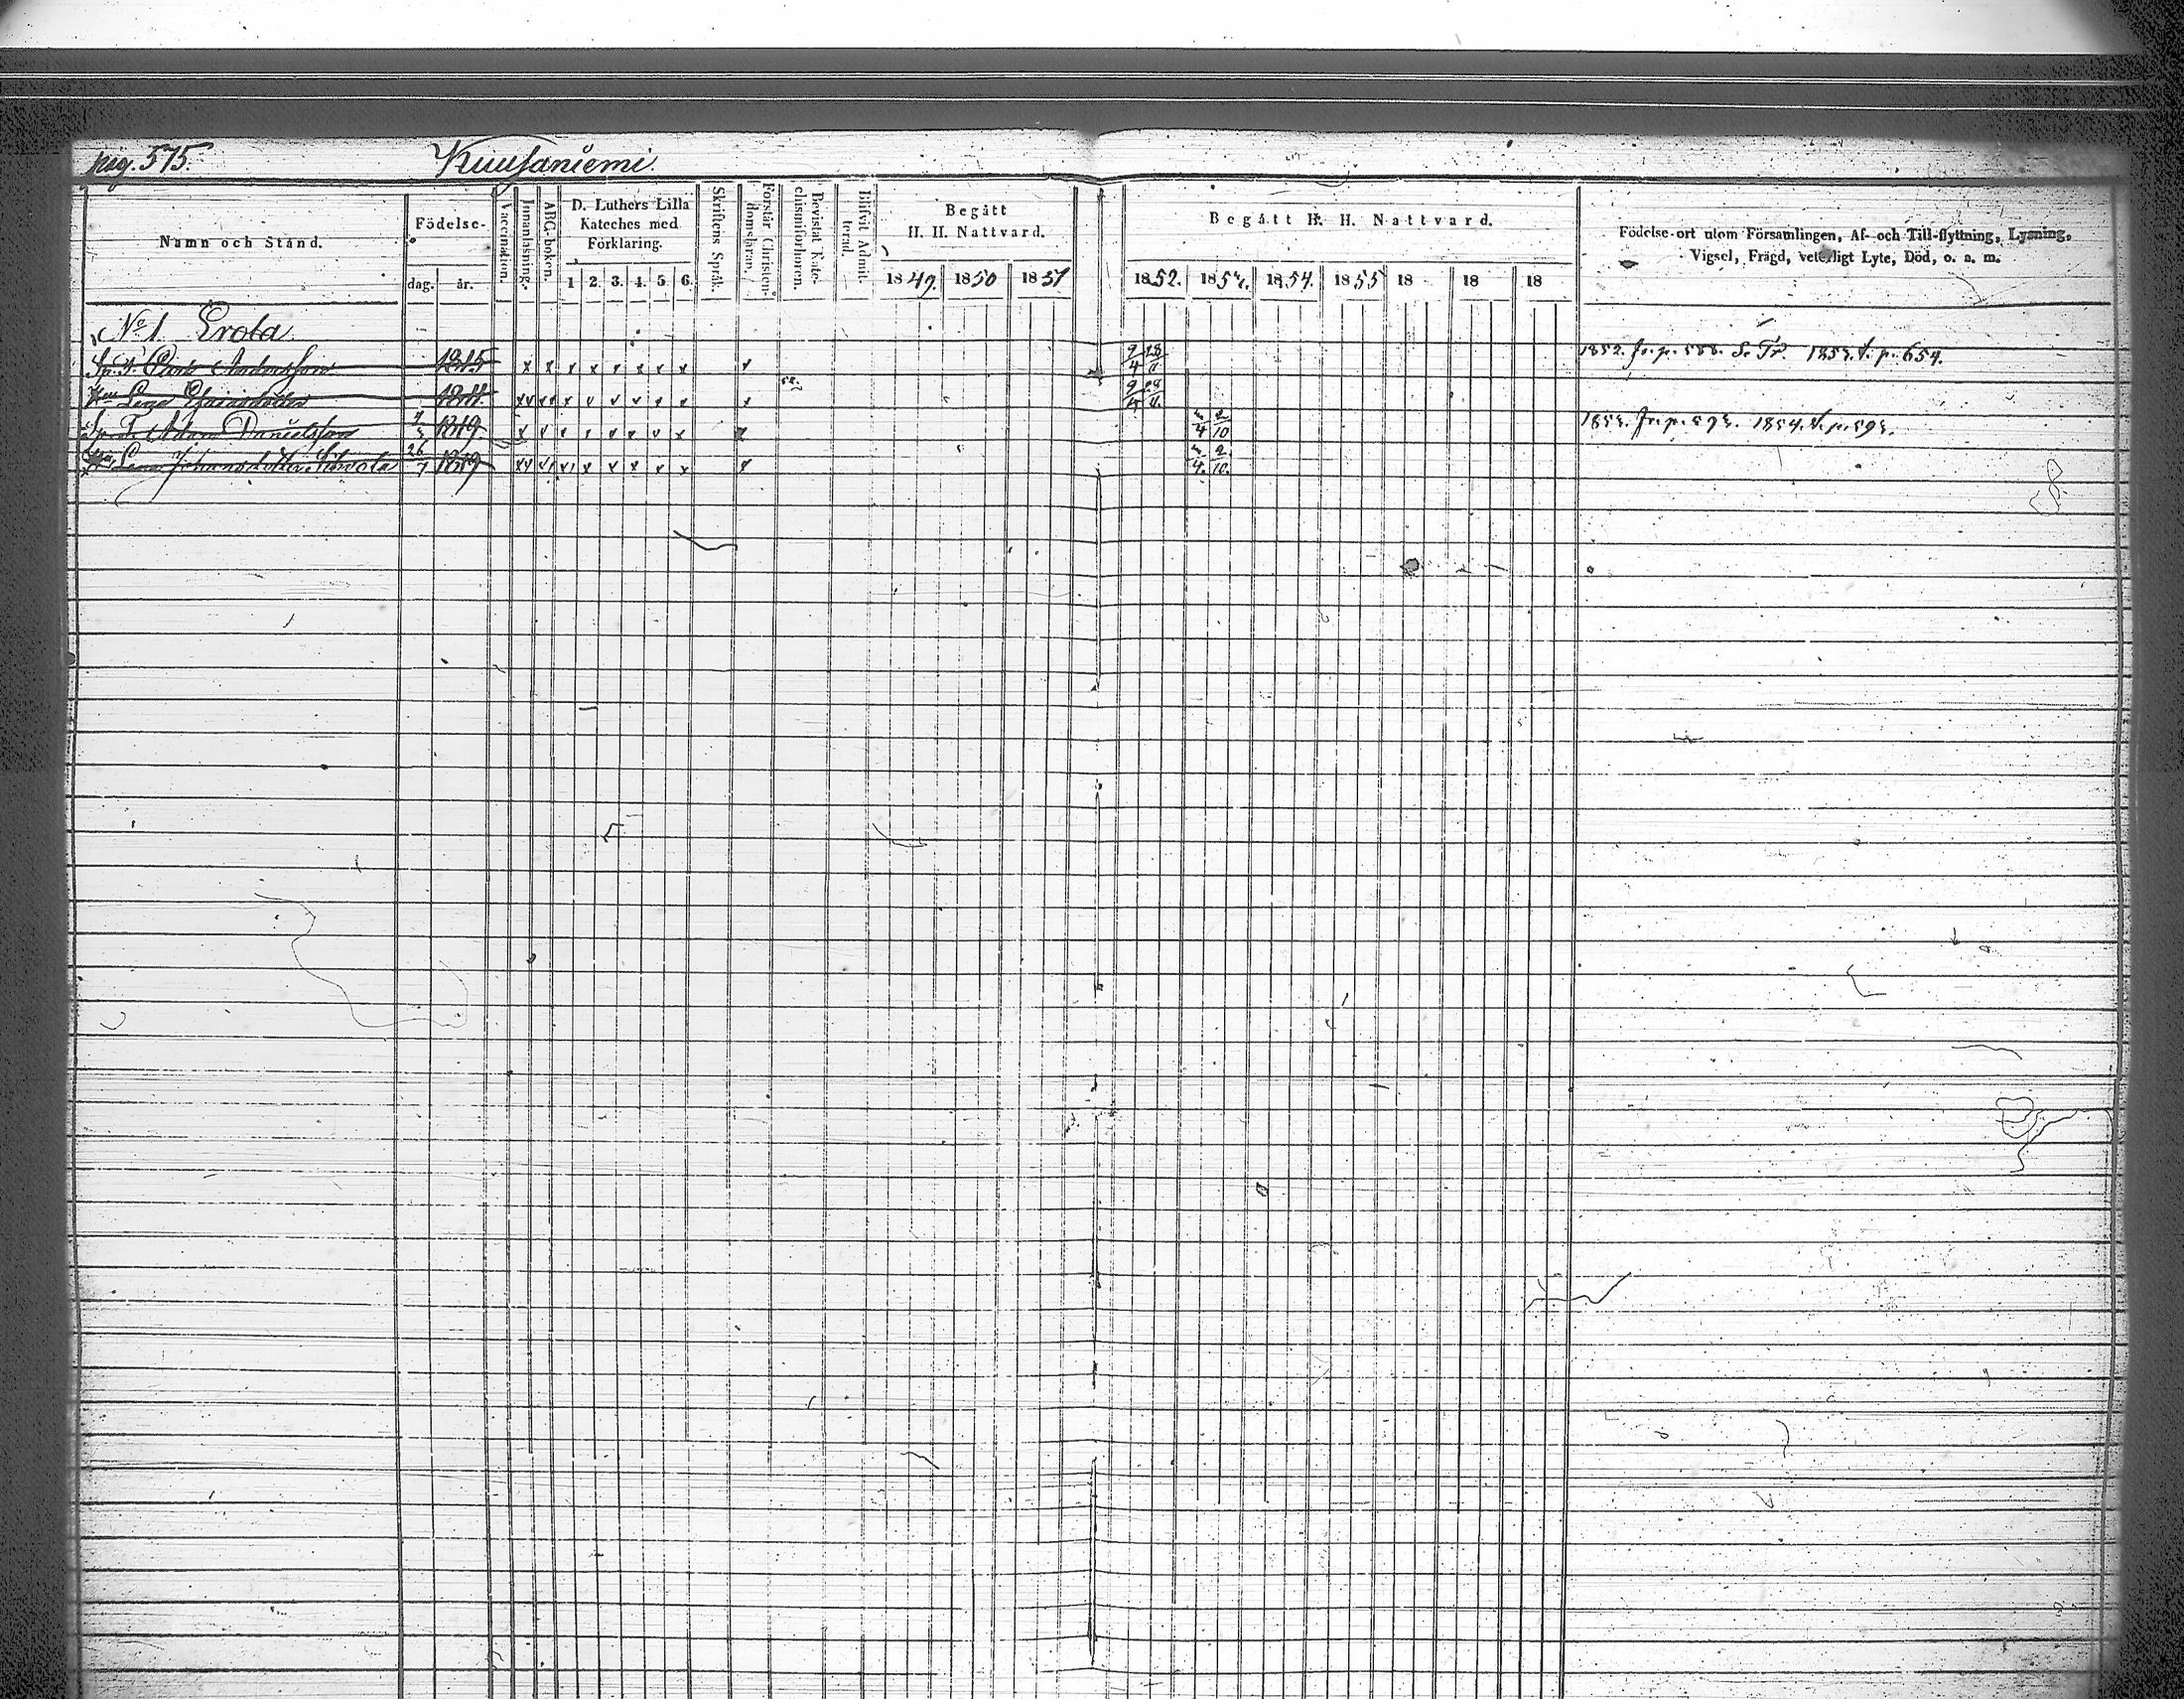 pag. 575. Kuusaniemi.
Namn och Stånd. Födelse- dag. år. Vaccination. Innanläsning. ABC-boken. D. Luthers Lilla Kateches med Förklaring. 1 2. 3. 4. 5. 6. Skriftens Språk. Förstår Christen-domsläran. Bevistat Kate-chismiförhören. Blifvit Admit-terad. Begått H. H. Nattvard. 1849. 1850 1851 Begått H. H. Nattvard. 1852. 1853. 1854. 1855 18 18 18 Födelse-ort utom Församlingen, Af- och Till-flyttning, Lysning, Vigsel, Frägd, veterligt Lyte, Död, o. a. m.
No 1. Erola
Andersson 1815 x x x x x x x x x 9/4 28/11 1852. fr. p. 588. 1853. t. p. 654.
Lena 1811. 9/4 28/11
Adam Danielsson 1819. 3/4 2/10 1853. fr. p. 593. 1854. t. p. 593.
Lena Johansdotter 26/7 1819 3/4. 2/10.